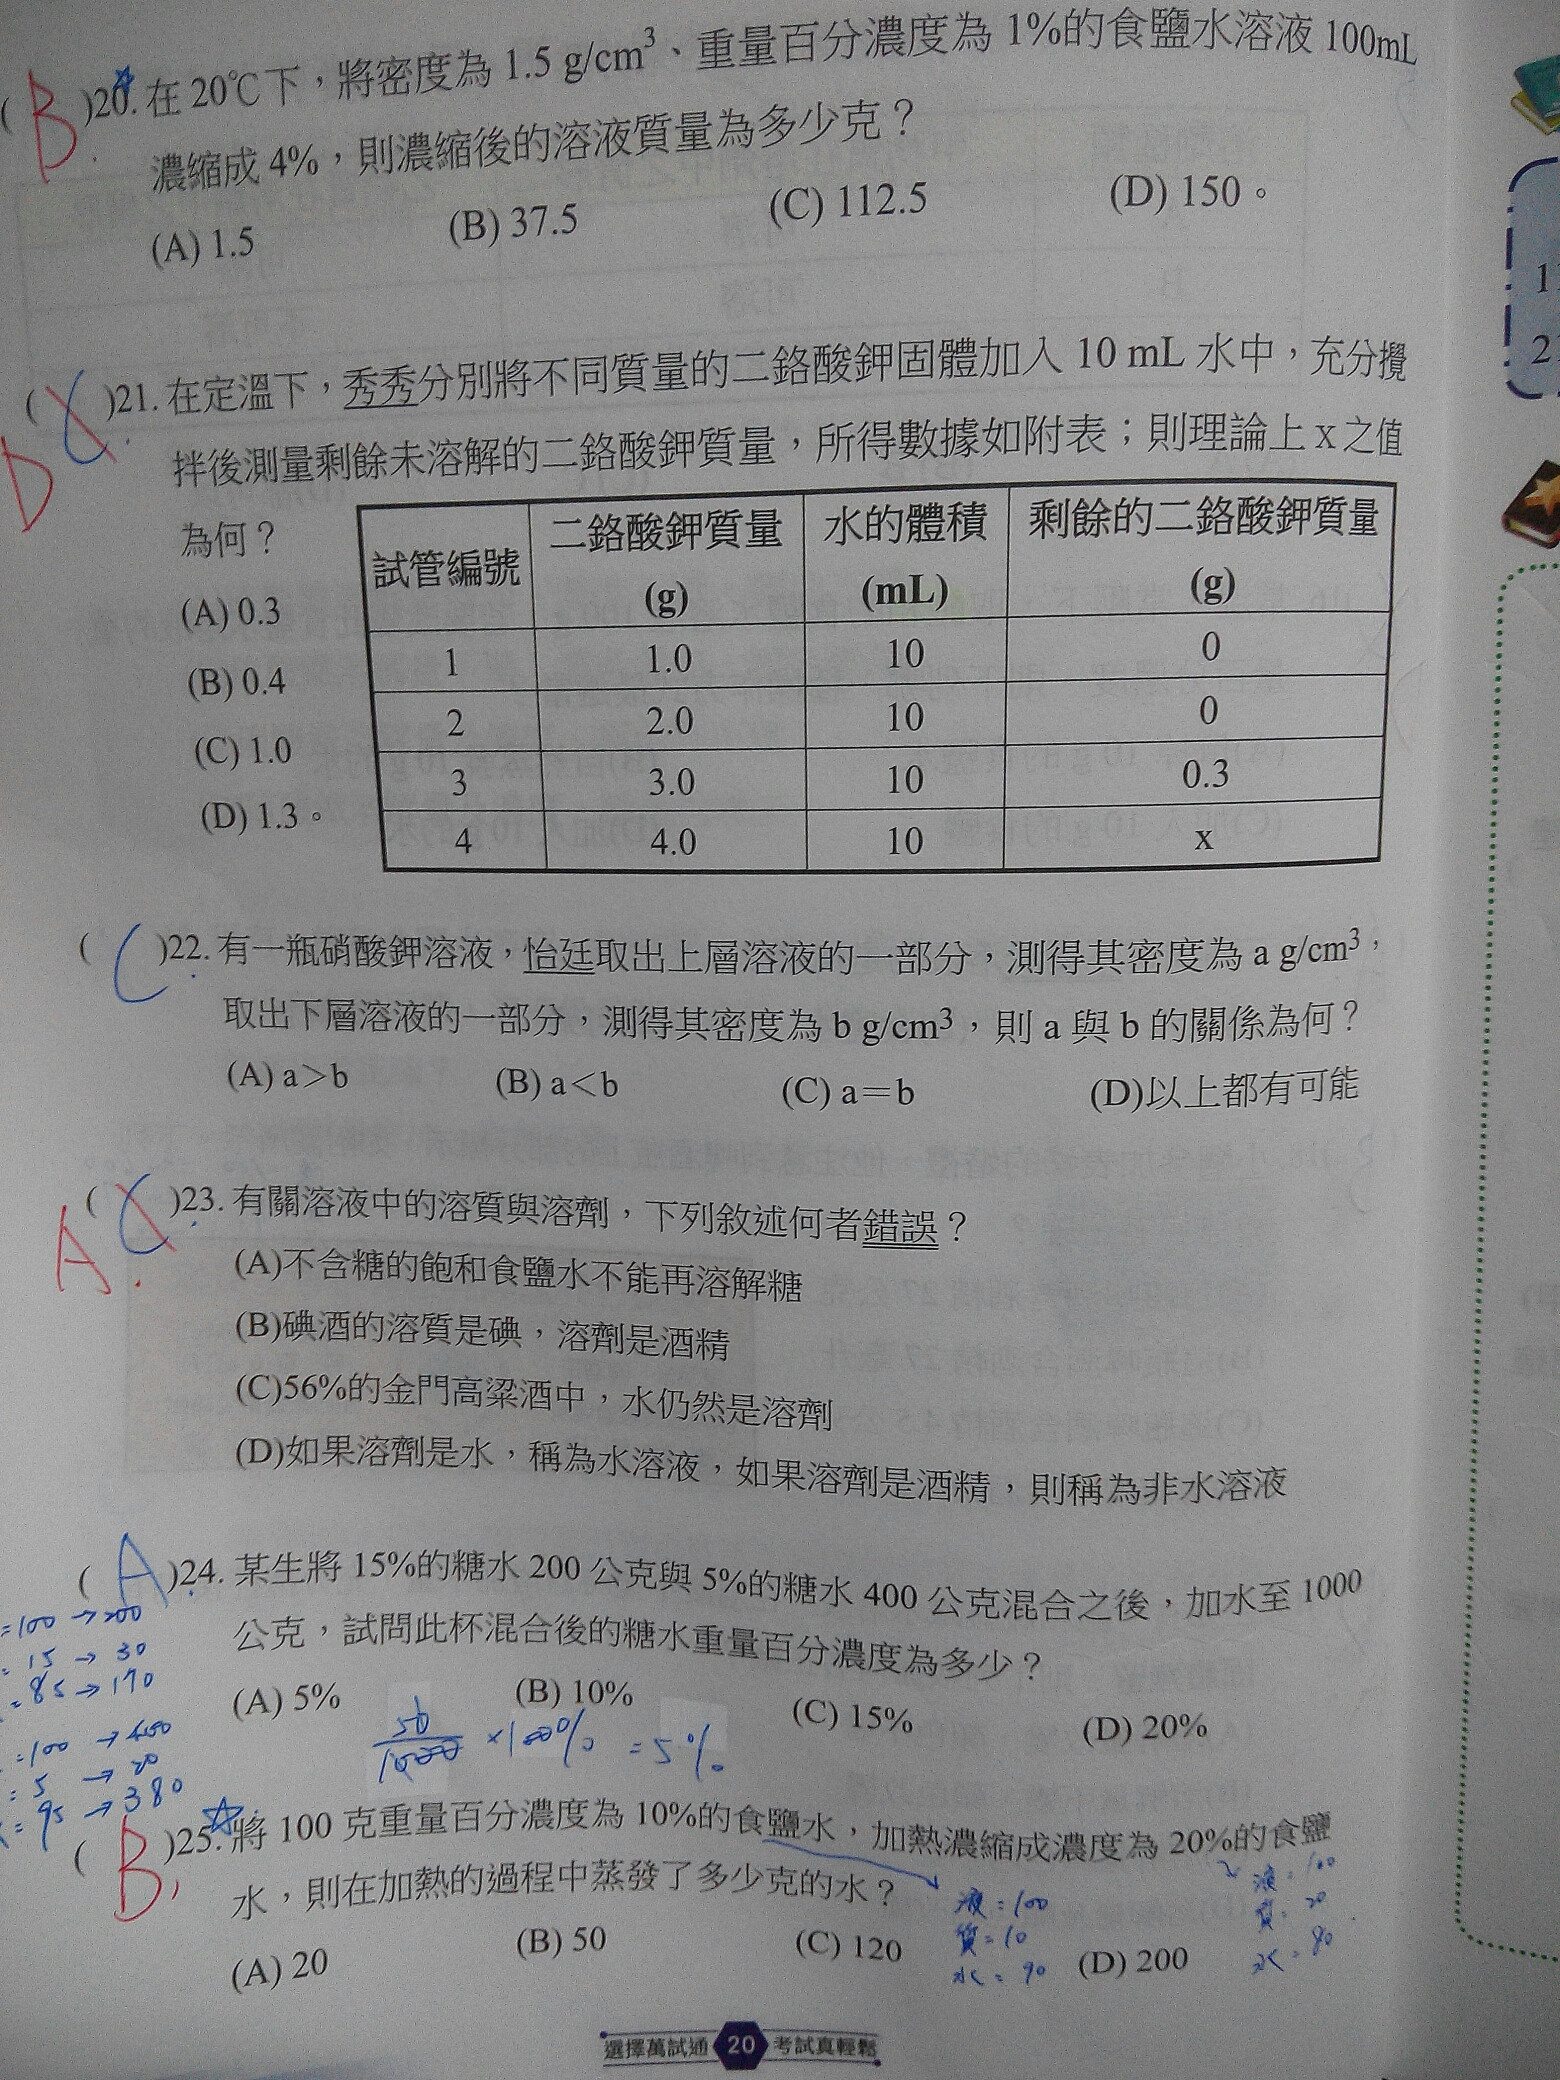 ( B )20. 在 20℃下，將密度為 1.5 g/cm³、重量百分濃度為 1%的食鹽水溶液 100mL
濃縮成 4%，則濃縮後的溶液質量為多少克？
(A) 1.5 (B) 37.5 (C) 112.5 (D) 150。
( C )21. 在定溫下，秀秀分別將不同質量的二鉻酸鉀固體加入 10 mL 水中，充分攪
D
拌後測量剩餘未溶解的二鉻酸鉀質量，所得數據如附表；則理論上 x 之值
為何？
(A) 0.3
(B) 0.4
(C) 1.0
(D) 1.3。
試管編號 二鉻酸鉀質量 (g) 水的體積 (mL) 剩餘的二鉻酸鉀質量 (g)
1 1.0 10 0
2 2.0 10 0
3 3.0 10 0.3
4 4.0 10 x
( C )22. 有一瓶硝酸鉀溶液，怡廷取出上層溶液的一部分，測得其密度為 a g/cm³，
取出下層溶液的一部分，測得其密度為 b g/cm³，則 a 與 b 的關係為何？
(A) a＞b (B) a＜b (C) a＝b (D)以上都有可能
( C )23. 有關溶液中的溶質與溶劑，下列敘述何者錯誤？
A
(A)不含糖的飽和食鹽水不能再溶解糖
(B)碘酒的溶質是碘，溶劑是酒精
(C)56%的金門高粱酒中，水仍然是溶劑
(D)如果溶劑是水，稱為水溶液，如果溶劑是酒精，則稱為非水溶液
( A )24. 某生將 15%的糖水 200 公克與 5%的糖水 400 公克混合之後，加水至 1000
公克，試問此杯混合後的糖水重量百分濃度為多少？
(A) 5% (B) 10% (C) 15% (D) 20%
=100 → 200
= 15 → 30
= 85 → 170
=100 → 400
= 5 → 20
= 95 → 380
50/1000 ×100% = 5%
( B )25. 將 100 克重量百分濃度為 10%的食鹽水，加熱濃縮成濃度為 20%的食鹽
水，則在加熱的過程中蒸發了多少克的水？
(A) 20 (B) 50 (C) 120 (D) 200
液=100
質=10
水=90
液=100
質=20
水=80
選擇萬試通 20 考試真輕鬆
1
2